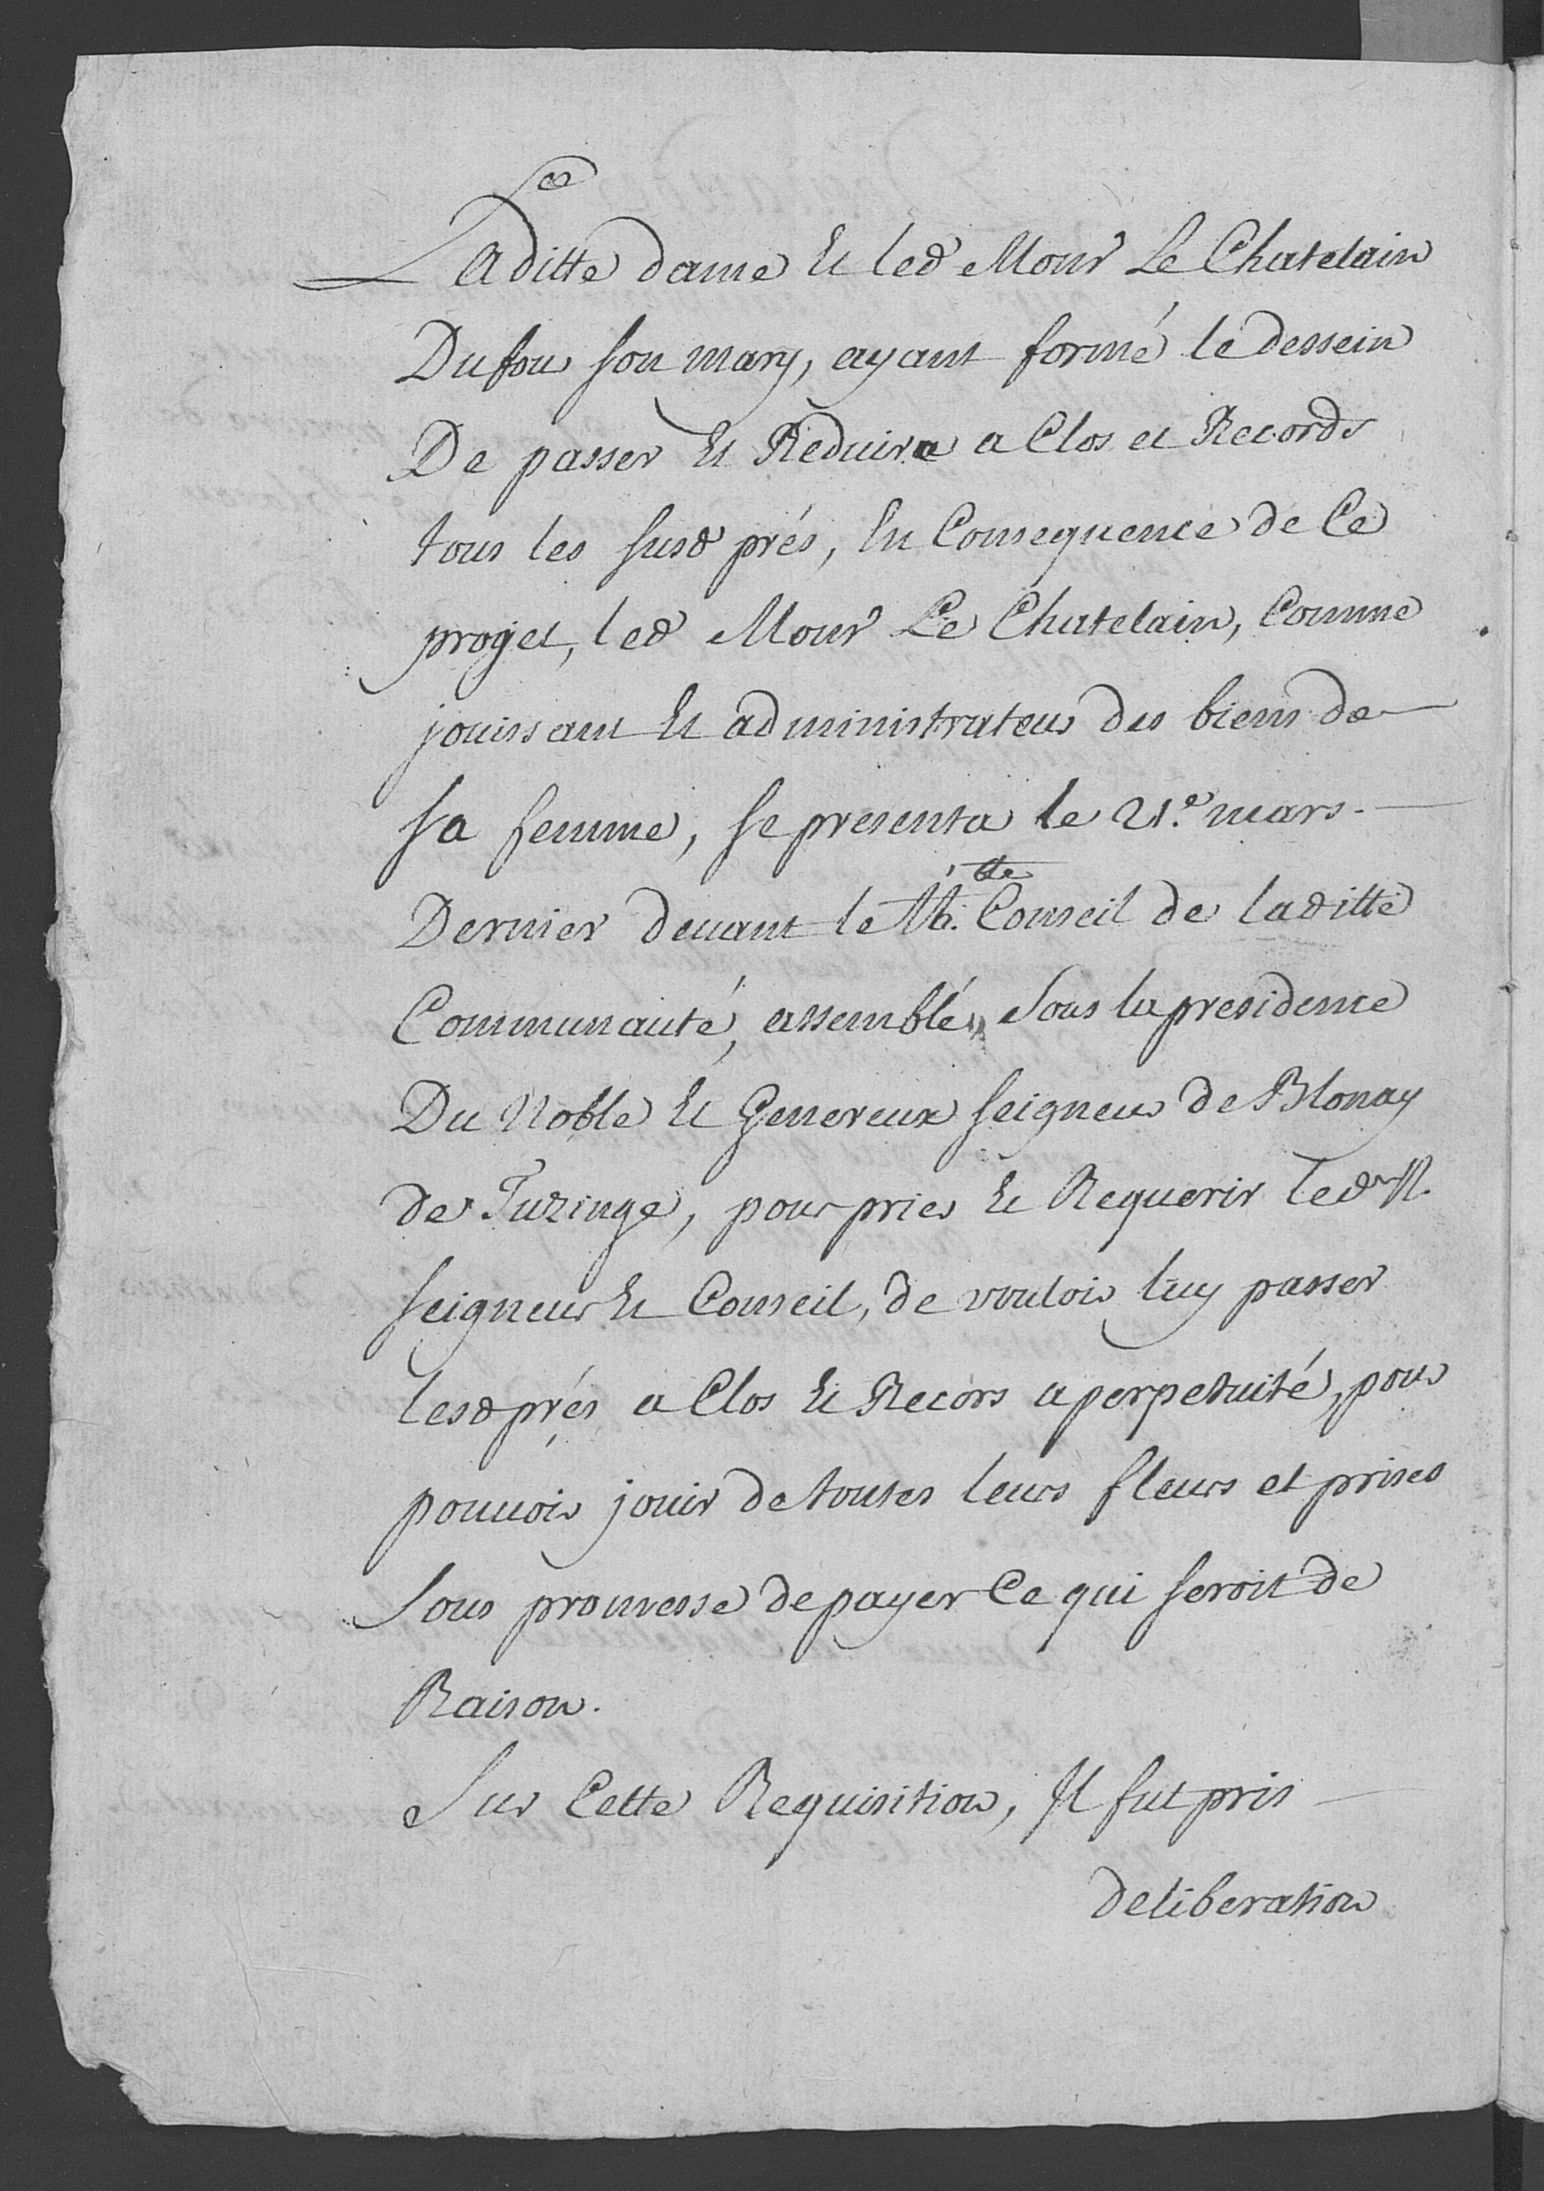 Laditte dame Et led Monsr Le Chatelain
Dufou son mary, ayant formé le dessein
De passer Et Reduire a Clos et Records
tous les susd prés, En Consequence de Ce
projet, led Monsr Le Chatelain, Comme
jouissant Et administrateur des biens de
sa femme, se presenta le 21.e mars
Dernier devant le Conseil de laditte
Communauté, assemblé, Sous la presidence
Du Noble Et Genereux seigneur de Blonay
de Tuzinge, pour prier Et Requerir led N.
seigneur Et Conseil, de vouloir luy passer
lesd prés a Clos Et Recors a perpetuité, pour
pouvoir jouir de toutes leurs fleurs et prises
Sous promesse de payer Ce qui seroit de
Raison.
Sur Cette Requisition, Il fut pris
deliberation